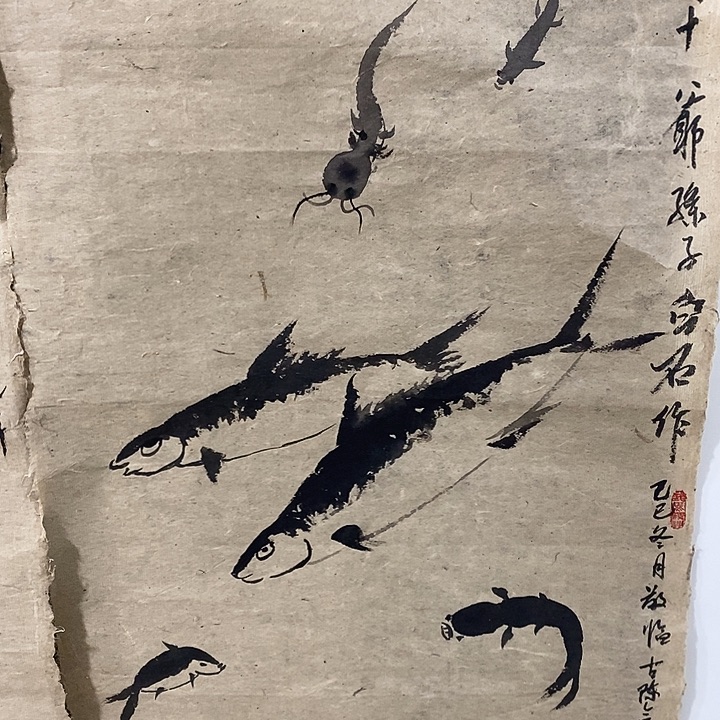 十八爺孫子白石作
乙巳冬月敬臨古